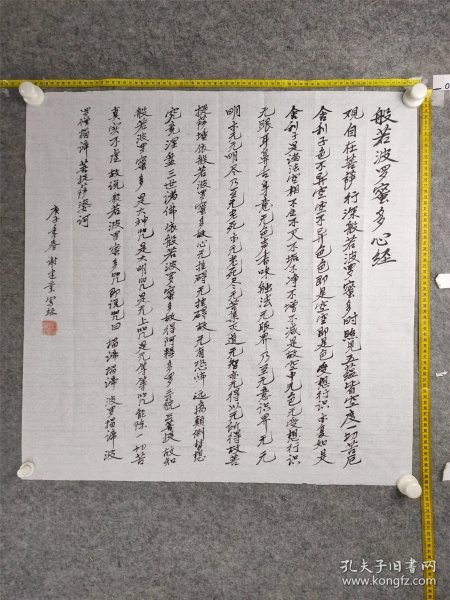 般若波罗蜜多心经
观自在菩萨行深般若波罗蜜多时照见五蕴皆空度一切苦厄
舍利子色不异空空不异色色即是空空即是色受想行识亦复如是
舍利子是诸法空相不生不灭不垢不净不增不减是故空中无色无受想行识
无眼耳鼻舌身意无色声香味触法无眼界乃至无意识界无无
明亦无无明尽乃至无老死亦无老死尽无苦集灭道无智亦无得以无所得故菩
提萨埵依般若波罗蜜多故心无挂碍无挂碍故无有恐怖远离颠倒梦想
究竟涅盘三世诸佛依般若波罗蜜多故得阿耨多罗三藐三菩提故知
般若波罗蜜多是大神咒是大明咒是无上咒是无等等咒能除一切苦
真实不虚故说般若波罗蜜多咒即说咒曰揭谛揭谛波罗揭谛波
罗僧揭谛菩提萨婆诃
庚子年春谢
孔夫子旧书网
www.kongfz.com